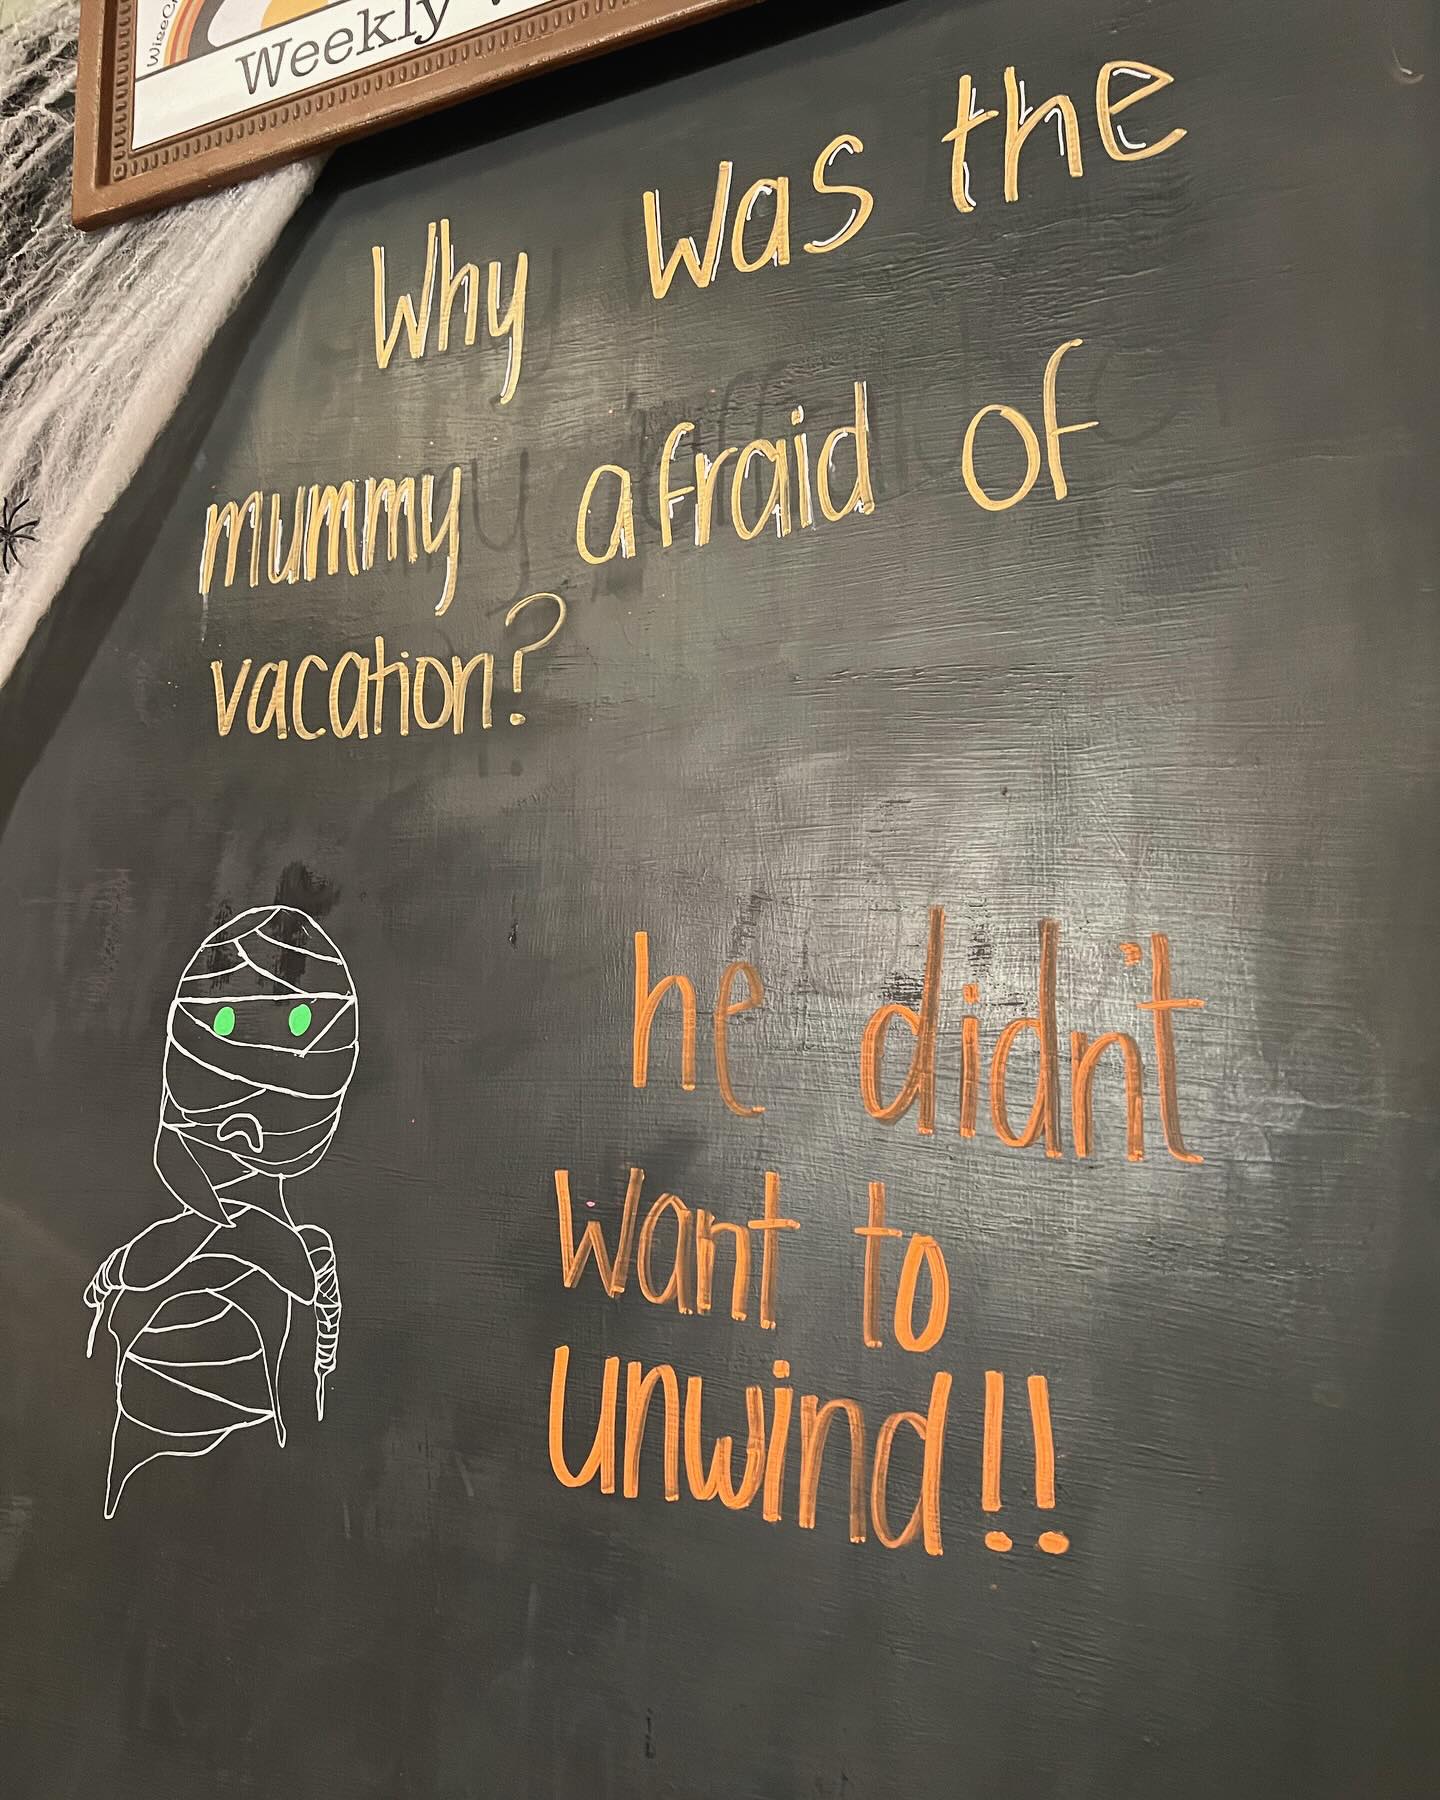 Weekly
Why was the
mummy afraid of
vacation?
he didn't
want to
unwind!!